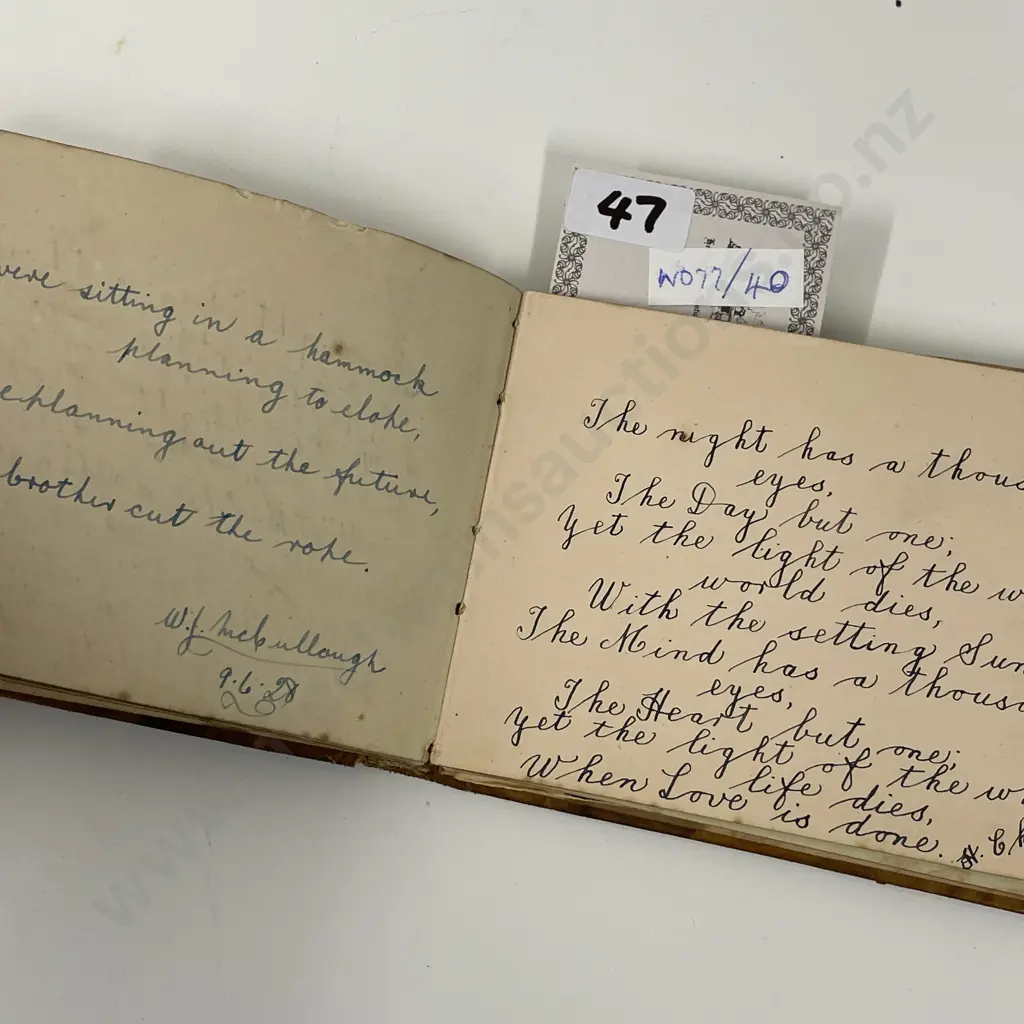 were sitting in a hammock
planning to elope,
planning out the future,
brother cut the rope.
W.J. McCullough
9.6.28
47
N077/40
The night has a thous
eyes,
The Day but one;
Yet the light of the w
world dies,
With the setting Sun
The Mind has a thous
eyes,
The Heart but one;
Yet the light of the wh
life dies,
When Love is done.